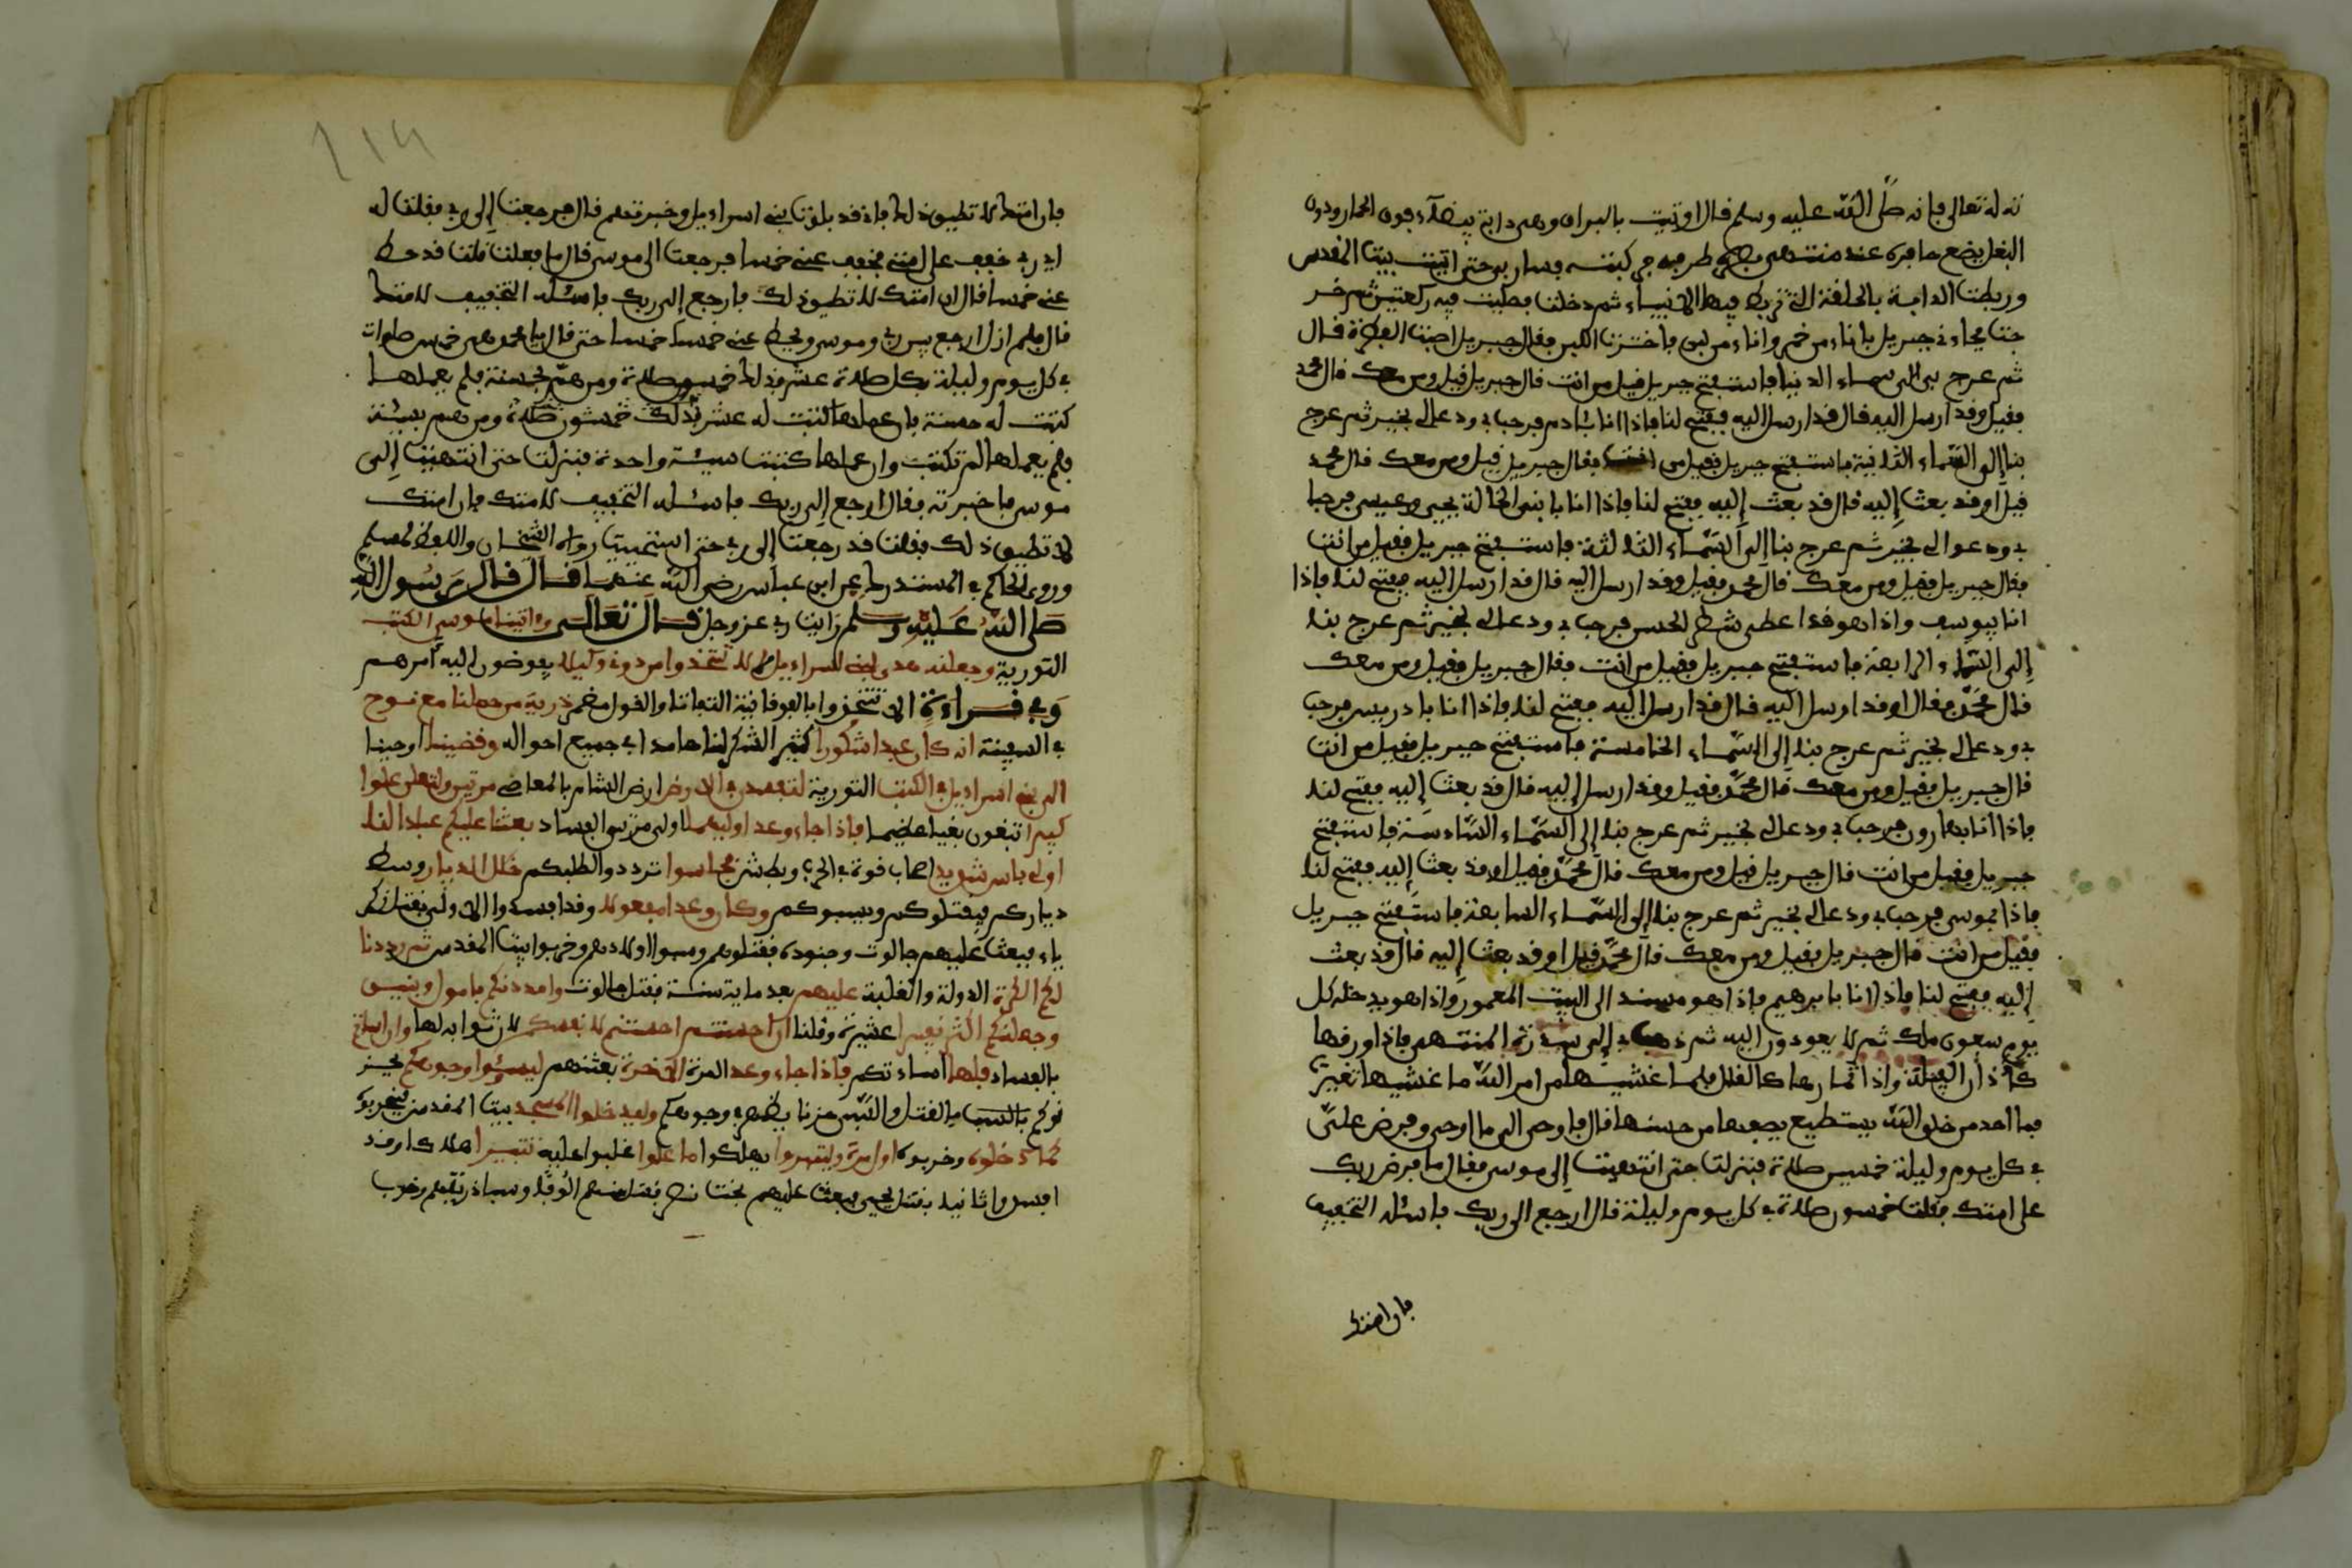 ته له تعالى فإنه صلى الله عليه وسلم قال اوتيت بالبراق وهي دابة بيضآء فوق الحمار ودون
البغل يضع حافره عند منتهى طرفه فركبته فسار بي حتى اتيت بيت المقدس
وربطت الدابة بالحلقة التي تربط فيها الانبياء ثم دخلت فصليت فيه ركعتين ثم خر
جت فجاءني جبريل باناء من خمر واناء من لبن فاخترت اللبن فقال جبريل اصبت الفطرة قال
ثم عرج بي الى سماء الدنيا فاستفتح جبريل قيل من انت قال جبريل قيل ومن معك قال محمد
فقيل وقد ارسل اليه قال قد ارسل اليه ففتح لنا فاذا انا بئادم فرحب بي ودعا لي بخير ثم عرج
بنا إلى السماء الثانية فاستفتح جبريل فقيل من انت فقال جبريل قيل ومن معك قال محمد
قيل اوقد بعث إليه قال قد بعث إليه ففتح لنا فاذا انا بابني الخالة يحيى وعيسى فرحبا
بي ودعوا لي بخير ثم عرج بنا إلى السماء الثالثة فاستفتح جبريل فقيل من انت
فقال جبريل فقيل ومن معك قال محمد فقيل وقد ارسل اليه قال قد ارسل اليه ففتح لنا فاذا
انا بيوسف واذا هو قد اعطي شطر الحسن فرحب بي ودعا لي بخير ثم عرج بنا
إلى السماء الرابعة فاستفتح جبريل فقيل من انت فقال جبريل فقيل ومن معك
قال محمد فقال اوقد ارسل اليه قال قد ارسل اليه ففتح لنا فاذا انا بادريس فرحب
بي ودعا لي بخير ثم عرج بنا إلى السماء الخامسة فاستفتح جبريل فقيل من انت
قال جبريل فقيل ومن معك قال محمد فقيل وقد ارسل إليه قال قد بعث إليه ففتح لنا
فاذا انا بهارون فرحب بي ودعا لي بخير ثم عرج بنا إلى السماء السادسة فاستفتح
جبريل فقيل من انت قال جبريل قيل ومن معك قال محمد فقيل اوقد بعث إليه ففتح لنا
فاذا بموسى فرحب بي ودعا لي بخير ثم عرج بنا إلى السماء السابعة فاستفتح جبريل
فقيل من انت قال جبريل فقيل ومن معك قال محمد قيل اوقد بعث إليه قال قد بعث
إليه ففتح لنا فاذا انا بابرهيم فاذا هو مسند الى البيت المعمور واذا هو يدخله كل
يوم سبعون ملك ثم لا يعودون اليه ثم ذهب بي إلى سدرة المنتهى فاذا ورقها
كئاذان الفيلة واذا ثمارها كالقلال فلما غشيها من امر الله ما غشيها تغيرت
فما احد من خلق الله يستطيع يصفها من حسنها قال فاوحى الي ما اوحى وفرض علي
في كل يوم وليلة خمسين صلاة فنزلت حتى انتهيت إلى موسى فقال ما فرض ربك
على امتك فقلت خمسون صلاة في كل يوم وليلة قال ارجع الى ربك فاسئله التخفيف
فان امتك
فان امتك لا تطيق ذلك فاني قد بلوت بني اسراءيل وخبرتهم قال فرجعت إلى ربي فقلت له
اي رب خفف على امتي فخفف عني خمسا فرجعت الى موسى قال ما فعلت قلت قد حط
عني خمسا قال ان امتك لا تطيق ذلك فارجع إلى ربك فاسئله التخفيف لامتك
قال فلم ازل ارجع بين ربي وموسى ويحط عني خمسا خمسا حتى قال يا محمد هي خمس صلوات
في كل يوم وليلة بكل صلاة عشر فذلك خمسون صلاة ومن هم بحسنة فلم يعملها
كتبت له حسنة فان عملها كتبت له عشر فذلك خمسون صلاة ومن هم بسيئة
فلم يعملها لم تكتب وان عملها كتبت سيئة واحدة فنزلت حتى انتهيت إلى
موسى فاخبرته فقال ارجع إلى ربك فاسئله التخفيف لامتك فان امتك
لا تطيق ذلك فقلت قد رجعت إلى ربي حتى استحييت رواه الشيخان واللفظ لمسلم
وروى الحاكم في المستدرك عن ابن عباس رضي الله عنهما قال قال رسول الله
صلى الله عليه وسلم رايت ربي عز وجل قال تعالى وءاتينا موسى الكتب
التورية وجعلنه هدى لبني اسراءيل لا تتخذوا من دوني وكيلا يفوضون اليه امرهم
وفي قراءة الا تتخذوا بالفوقانية التفاتا والقول مضمر ذرية من حملنا مع نوح
في السفينة انه كان عبدا شكورا كثير الشكر لنا حامدا في جميع احواله وقضينا اوحينا
الى بني اسراءيل في الكتب التورية لتفسدن في الارض ارض الشام بالمعاصي مرتين ولتعلن علوا
كبيرا تبغون بغيا عظيما فاذا جاء وعد اوليهما اولى مرتي الفساد بعثنا عليكم عبادا لنا
اولي باس شديد اصحاب قوة في الحرب وبطش فجاسوا ترددوا لطلبكم خلل الديار وسط
دياركم ليقتلوكم ويسبوكم وكان وعدا مفعولا وقد افسدوا الاولى بقتل زكر
ياء فبعث عليهم جالوت وجنوده فقتلوهم وسبوا اولادهم وخربوا بيت المقدس ثم رددنا
لكم الكرة الدولة والغلبة عليهم بعد ماية سنة بقتل جالوت وامددنكم باموال وبنين
وجعلنكم اكثر نفيرا عشيرة وقلنا ان احسنتم احسنتم لانفسكم لان ثوابه لها وان اساتم
بالفساد فلها اساءتكم فاذا جاء وعد المرة الاخرة بعثنهم ليسئوا وجوهكم يحز
نوكم بالقتل والسبي حزنا يظهر في وجوهكم وليدخلوا المسجد بيت المقدس فيخربوه
كما دخلوه وخربوه اول مرة وليتبروا يهلكوا ما علوا غلبوا عليه تتبيرا اهلاكا وقد
افسدوا ثانيا بقتل يحيى فبعث عليهم بخت نصر فقتل منهم الوفا وسبا ذريتهم وخرب